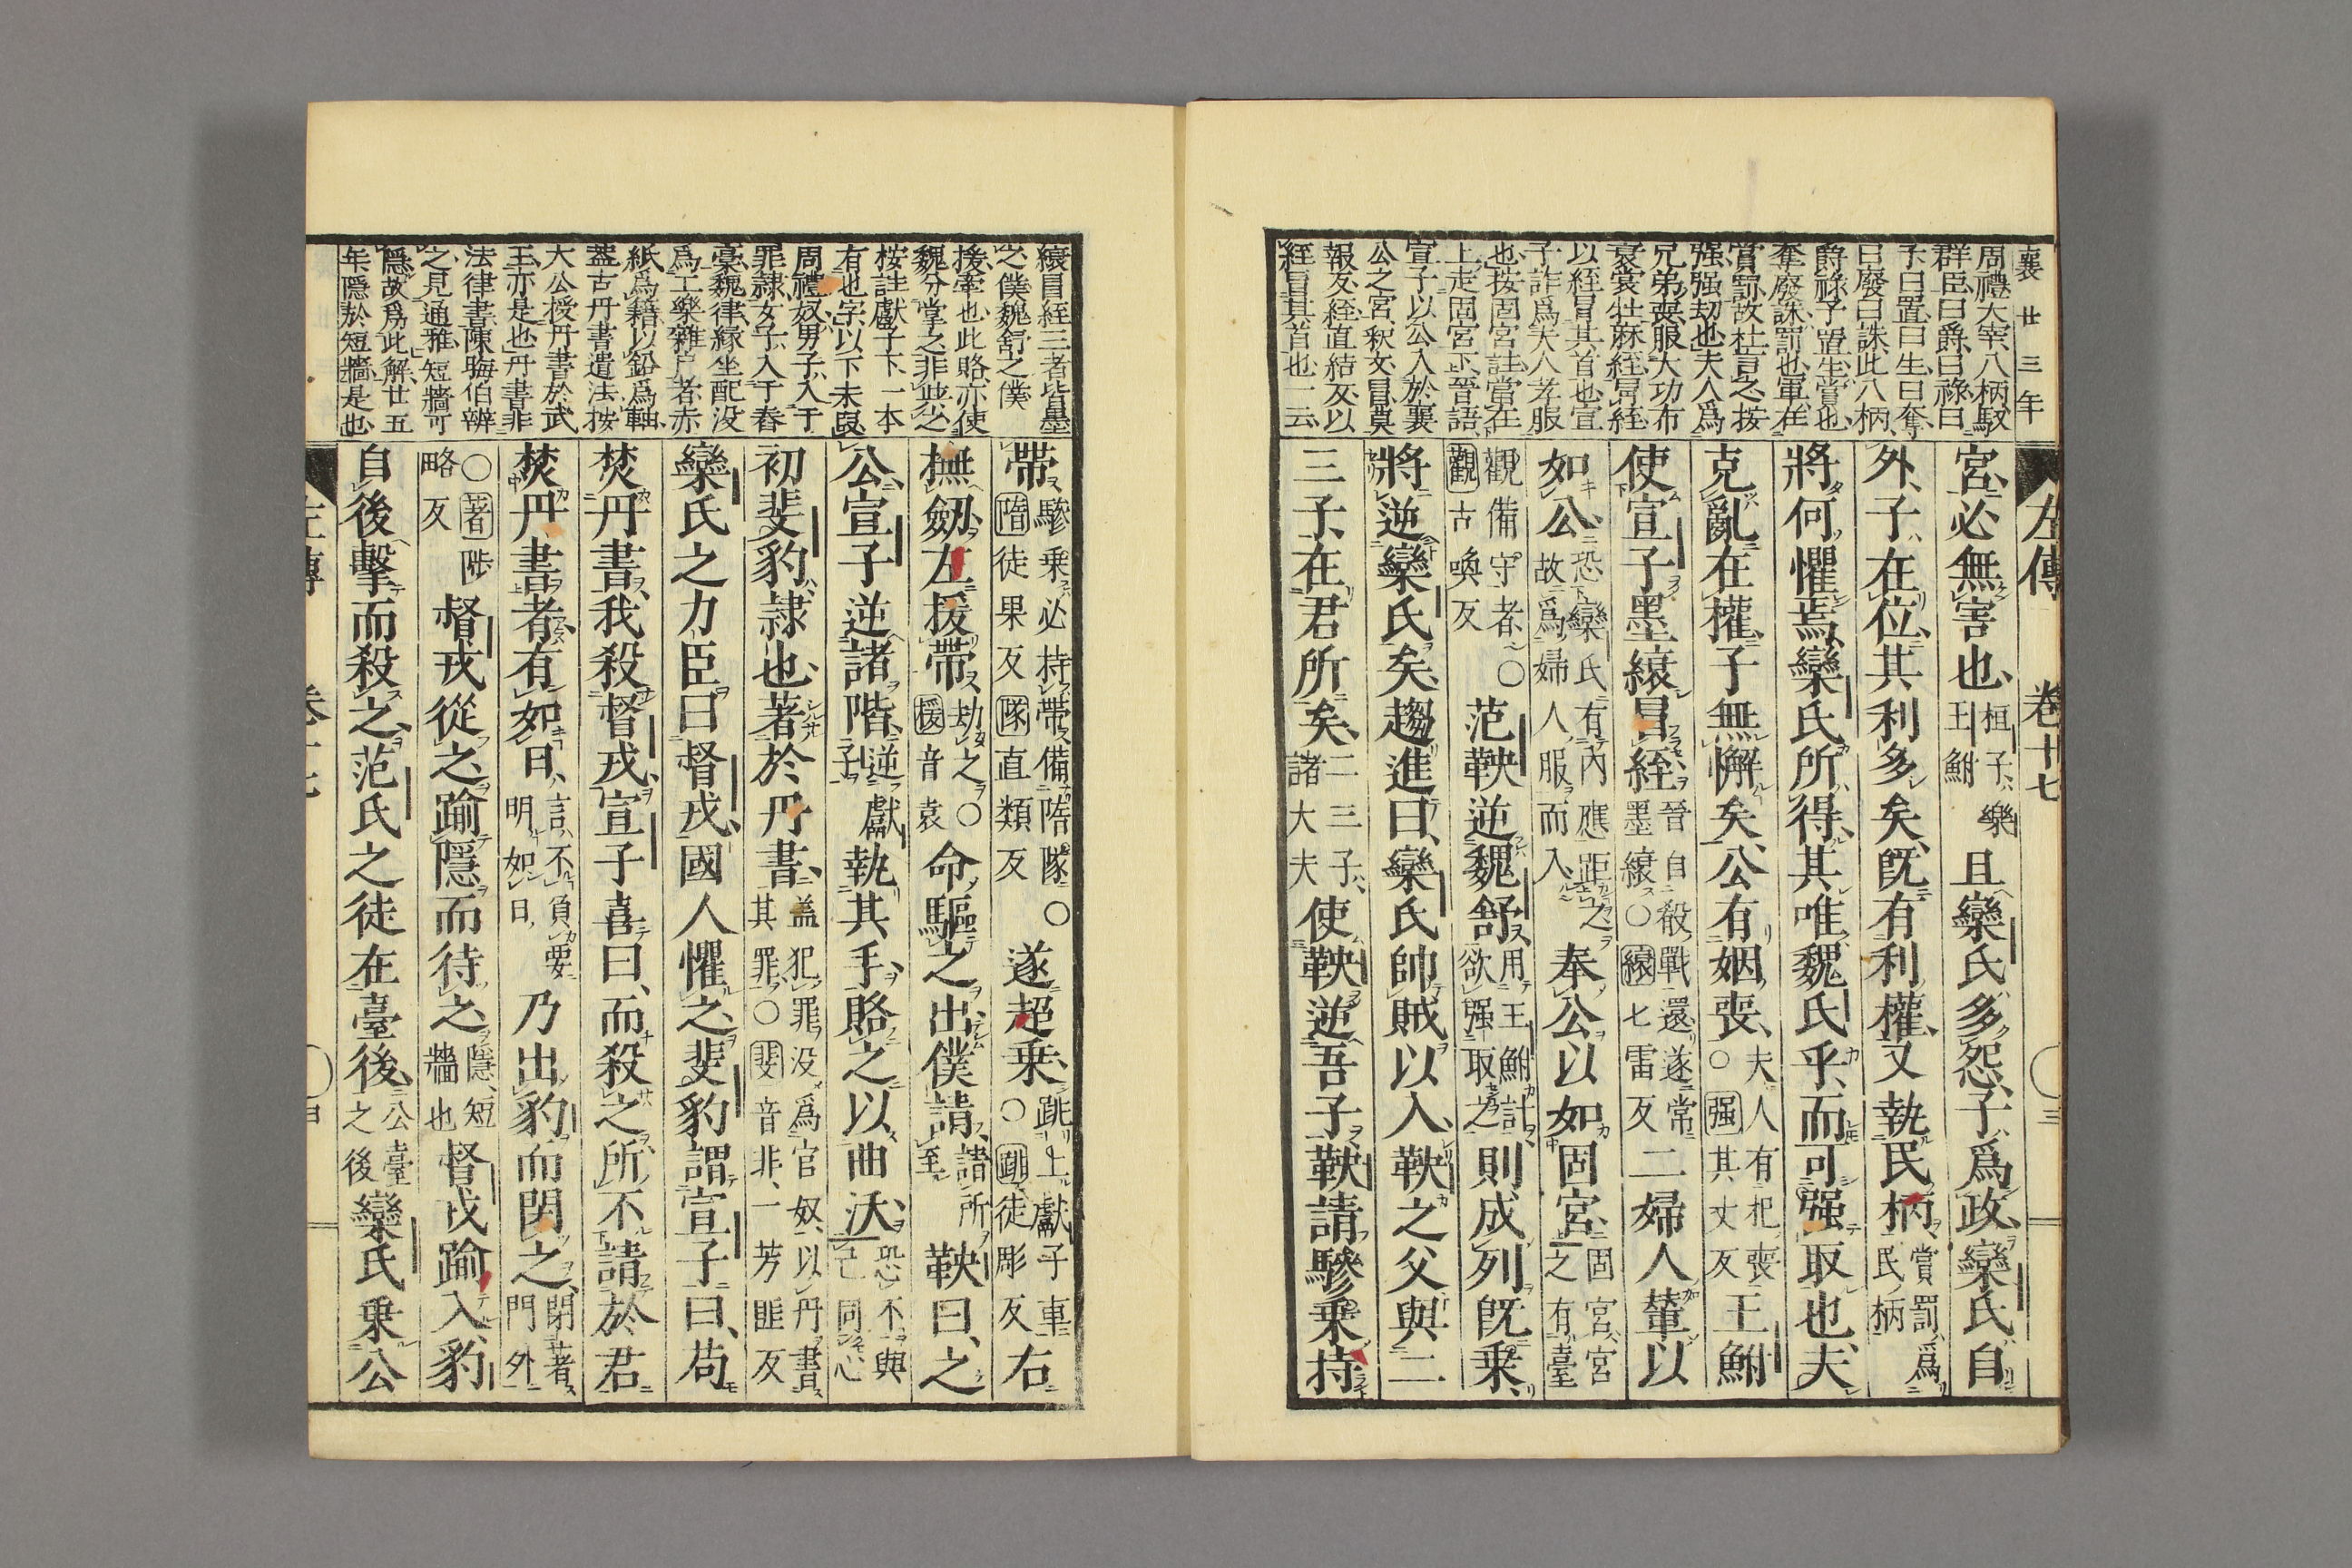 襄廿三年
左傳 卷十七 三
周禮大宰八柄馭
群臣曰爵曰祿曰
予曰置曰生曰奪
曰廢曰誅此八柄
爵祿予置生賞也
奪廢誅罰也軍在
賞罰故杜言之按
强强劫也夫人爲
兄弟喪服大功布
衰裳牡麻絰冒絰
以絰冒其首也宣
子詐爲夫人孝服
也按固宮註當在
上走固宮下晉語
宣子以公入於襄
公之宮釈文冒莫
報反絰直結反以
絰冒其首也一云
宮必無害也桓子樂王鮒且欒氏多怨子爲政欒氏自
外子在位其利多矣既有利權又執民柄賞罰爲民柄
將何懼焉欒氏所得其唯魏氏乎而可强取也夫
克亂在權子無懈矣公有姻喪夫人有杞喪○强其丈反王鮒
使宣子墨縗冒絰晉自殽戰還遂常墨縗○縗七雷反二婦人輦以
如公恐欒氏有內應距之故爲婦人服而入奉公以如固宮固宮宮之有臺
觀備守者○觀古喚反范鞅逆魏舒用王鮒計欲强取之則成列既乘
將逆欒氏矣趨進曰欒氏帥賊以入鞅之父與二
三子在君所矣二三子諸大夫使鞅逆吾子鞅請驂乘持
縗冒絰三者皆墨
之僕魏舒之僕
援牽也此賂亦使
魏分掌之非與之
按註獻子下一本
有也字以下未與
周禮奴男子入于
罪隷女子入于舂
槀魏律緣坐配没
爲工樂雜户者赤
紙爲籍以鉛爲軸
蓋古丹書遺法按
大公授丹書於武
王亦是也丹書非
法律書陳晦伯辨
之見通雅短牆可
隱故爲此解廿五
年隱於短牆是也
帶驂乘必持帶備隋隊○隋徒果反隊直類反遂超乘跳上獻子車○跳徒彫反右
撫劔左援帶劫之○援音袁命驅之出僕請請所至鞅曰之
公宣子逆諸階逆獻子執其手賂之以曲沃恐不與己同心
初斐豹隷也著於丹書蓋犯罪没爲官奴以丹書其罪○斐音非一芳匪反
欒氏之力臣曰督戎國人懼之斐豹謂宣子曰苟
焚丹書我殺督戎宣子喜曰而殺之所不請於君
焚丹書者有如日言不負要明如日乃出豹而閉之閉著門外
○著陟略反督戎從之踰隱而待之隱短牆也督戎踰入豹
自後擊而殺之范氏之徒在臺後公臺之後欒氏乘公